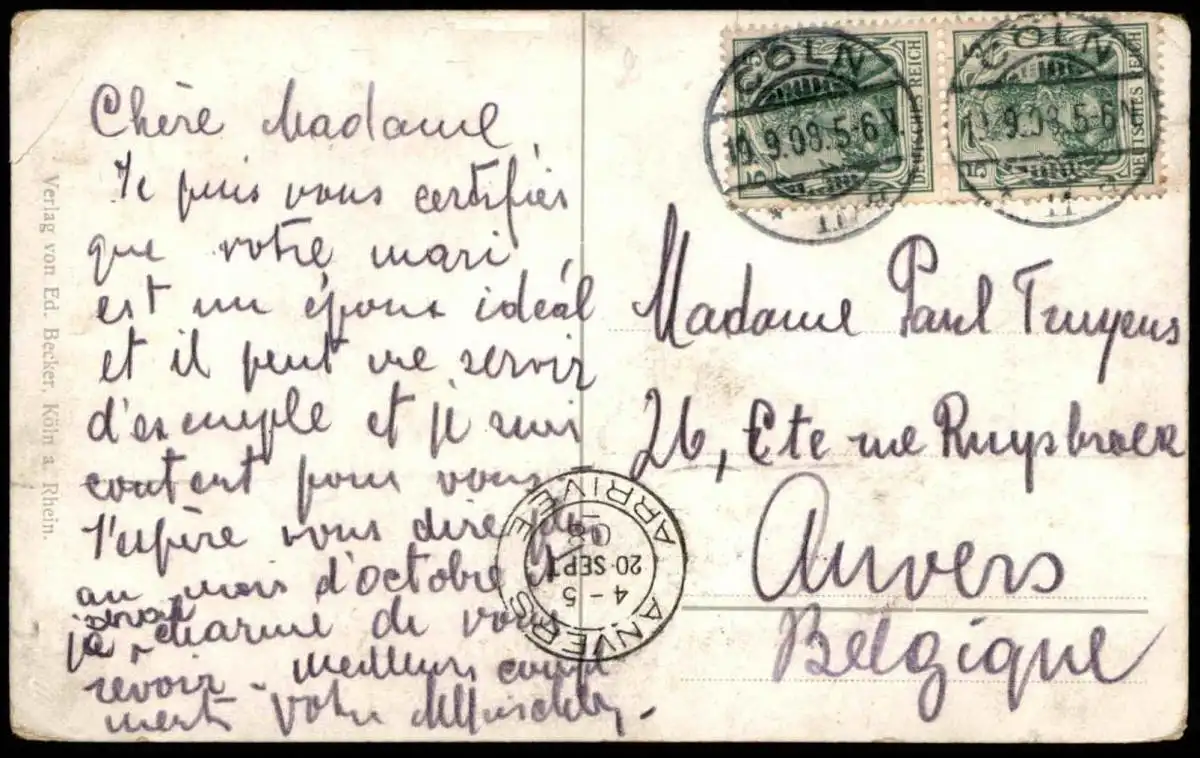 Chère Madame
Je puis vous certifier
que votre mari
est un époux idéal
et il peut me servir
d'exemple et je suis
content pour vous
J'espère vous dire
au mois d'octobre et
je serai charmé de vous
revoir - meilleurs compli
ments Votre
Madame Paul Truyens
26, Cte rue Ruysbroek
Anvers
Belgique
DEUTSCHES REICH
5
DEUTSCHES REICH
5
CÖLN
19.9.08.5-6V.
CÖLN
9.08.5-6
ANVERS
4-5
20 SEPT
08
ARRIVÉE
Verlag von Ed. Becker, Köln a Rhein.